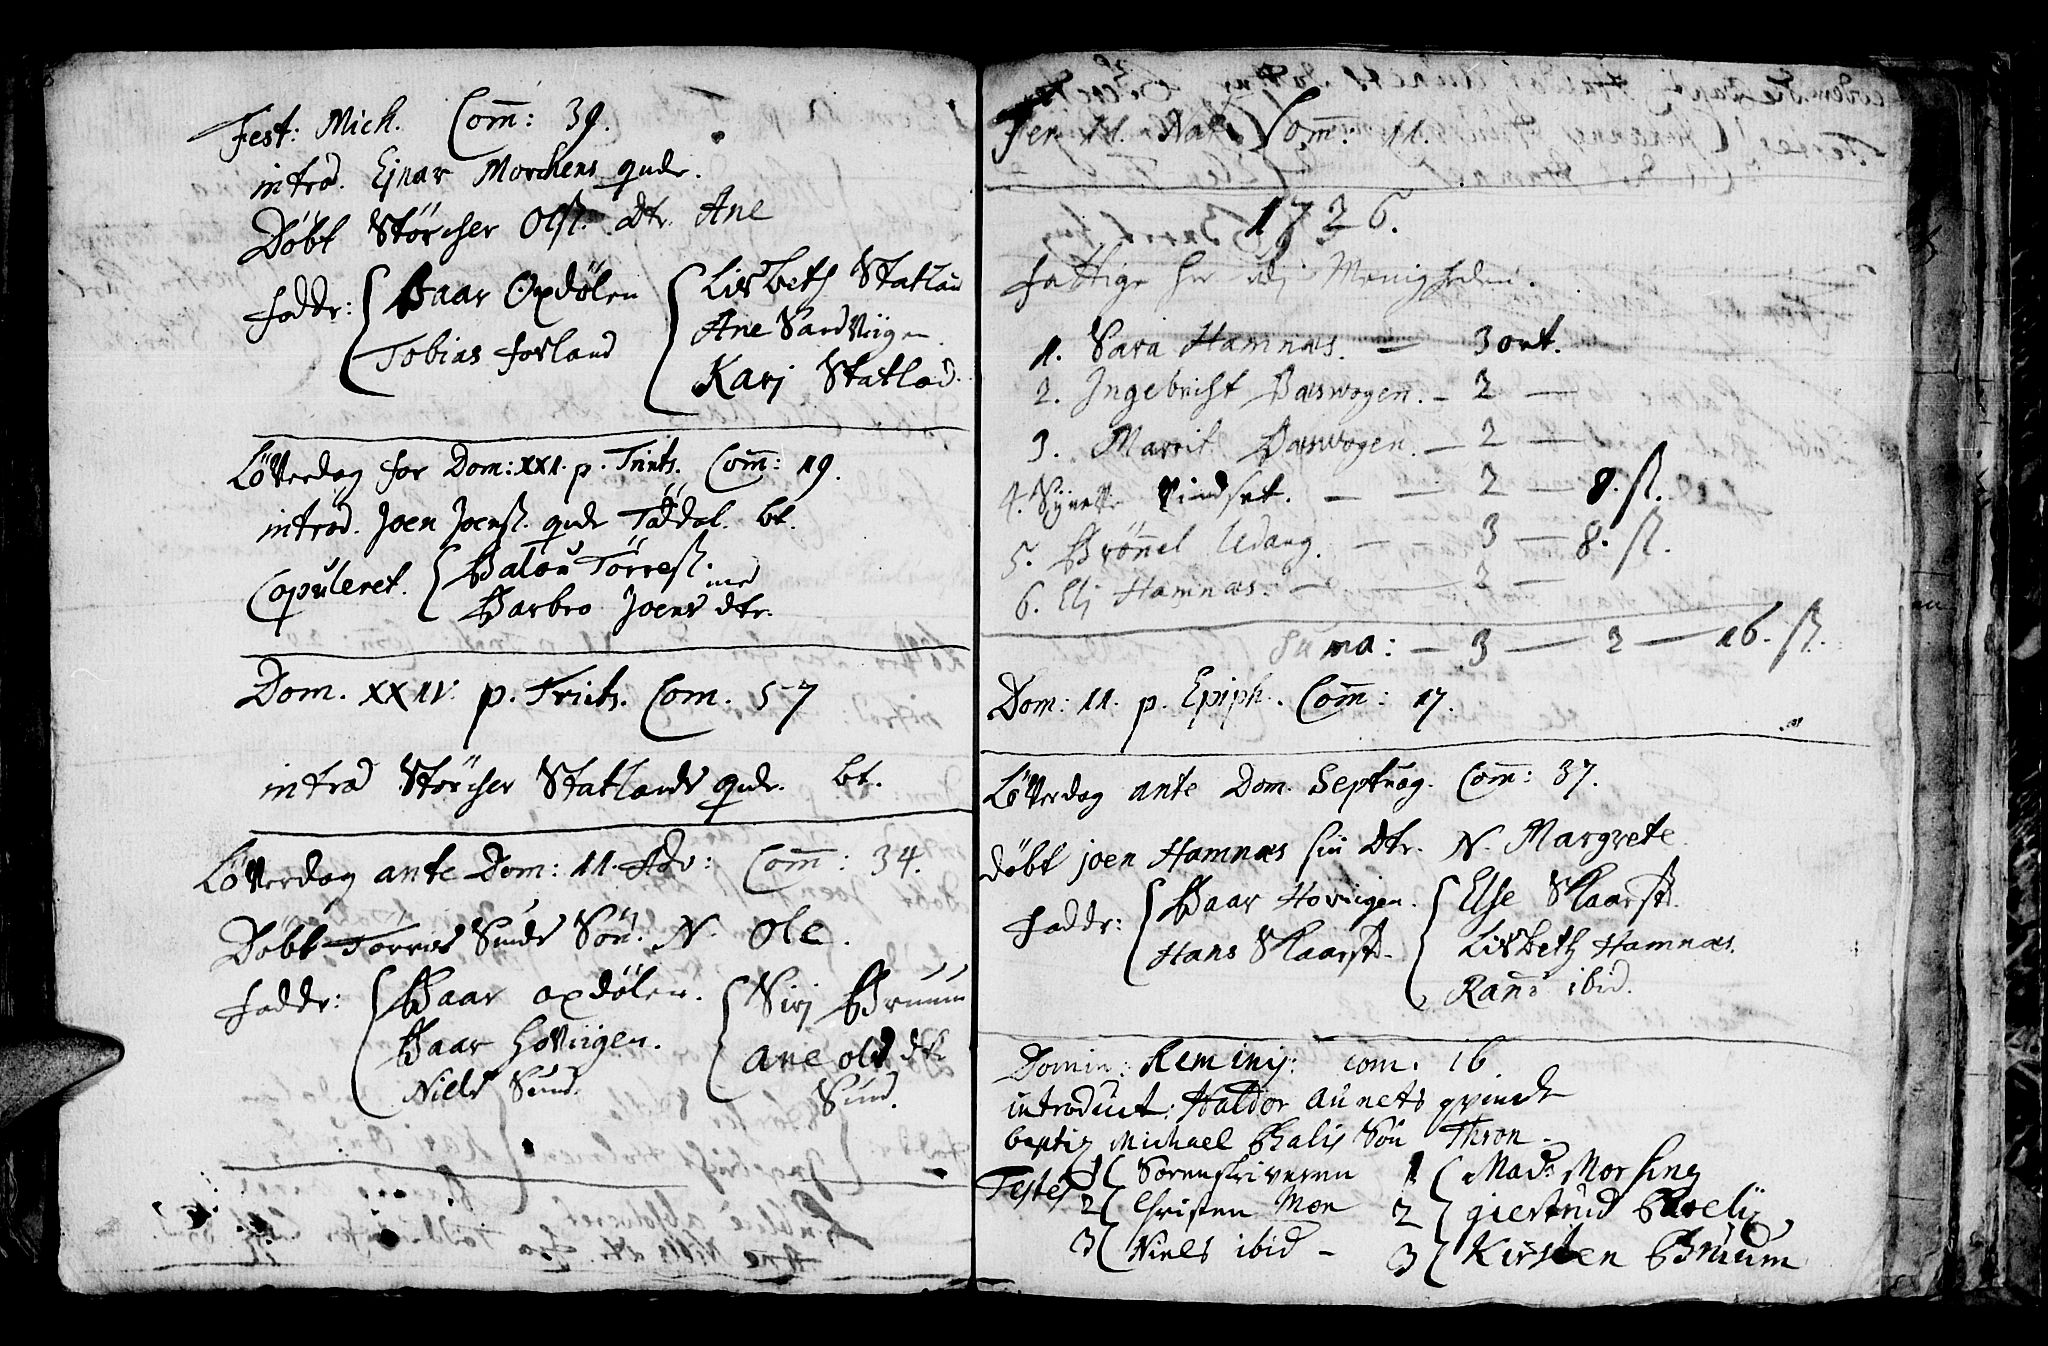 Fest: Mich. Com̄: 39.
introd. Ejnar Morchens qvdr.
Döbt Störcher Olß. Dtr. Ane
Faddr: Baar Oxdölen
Tobias Forland
Lisbeth Statlan
Ane Sandviigen.
Karj Statland.
Löverdag for Dom: XXI. p. Trinit. Com̄: 19.
introd. Joen Joenß. qvdr Taddal. bt.
Copuleret. Balou Törreß. med
Barbro Joens dtr.
Dom. XXIV. p. Trinit. Com. 57
introd Störcher Statlands qvdr. bt.
Löverdag ante Dom: 11. Adv: Com̄: 34.
Döbt Torres Sunds Sön. N. Ole.
Faddr: Baar oxdölen.
Baar Hoviigen.
Niels Sund.
Sirj Bruum
Ane ols dtr
Sund.
Fer. 11. Nat. Com̄: 11.
1726.
Fattige her udj Menigheden.
1. Sara Hamnæs. — 3 ort.
2. Ingebricht Bæsvogen. — 2 —
3. Marrit Bæsvogen. — 2 —
4. Synette Vindset. — — 2 — 8. ß.
5. Brönnel Udang. — — 3 — 8. ß.
6. Elj Hamnæs. — — 2 —
Suma: — 3 — 2 — 16. ß.
Dom: 11. p. Epiph. Com̄: 17.
Löverdag ante Dom. Septuag. Com̄: 37.
döbt joen Hamnæs sin Dtr. N. Margrete.
Faddr: Baar Hoviigen.
Hans Skaarstd.
Else Skaarstd.
Lisbeth Hamnæs.
Rañi ibid.
Domin: Reminis: com. 16
introduct: Haldor Aunets qvinde
baptiz Michael Balis Sön Thron.
Testes 1 Sorenskriveren
2 Christen Moe
3 Niels ibid —
1 Mad: Morsing
2 giertrud Barelij
3 Kirsten Bruum